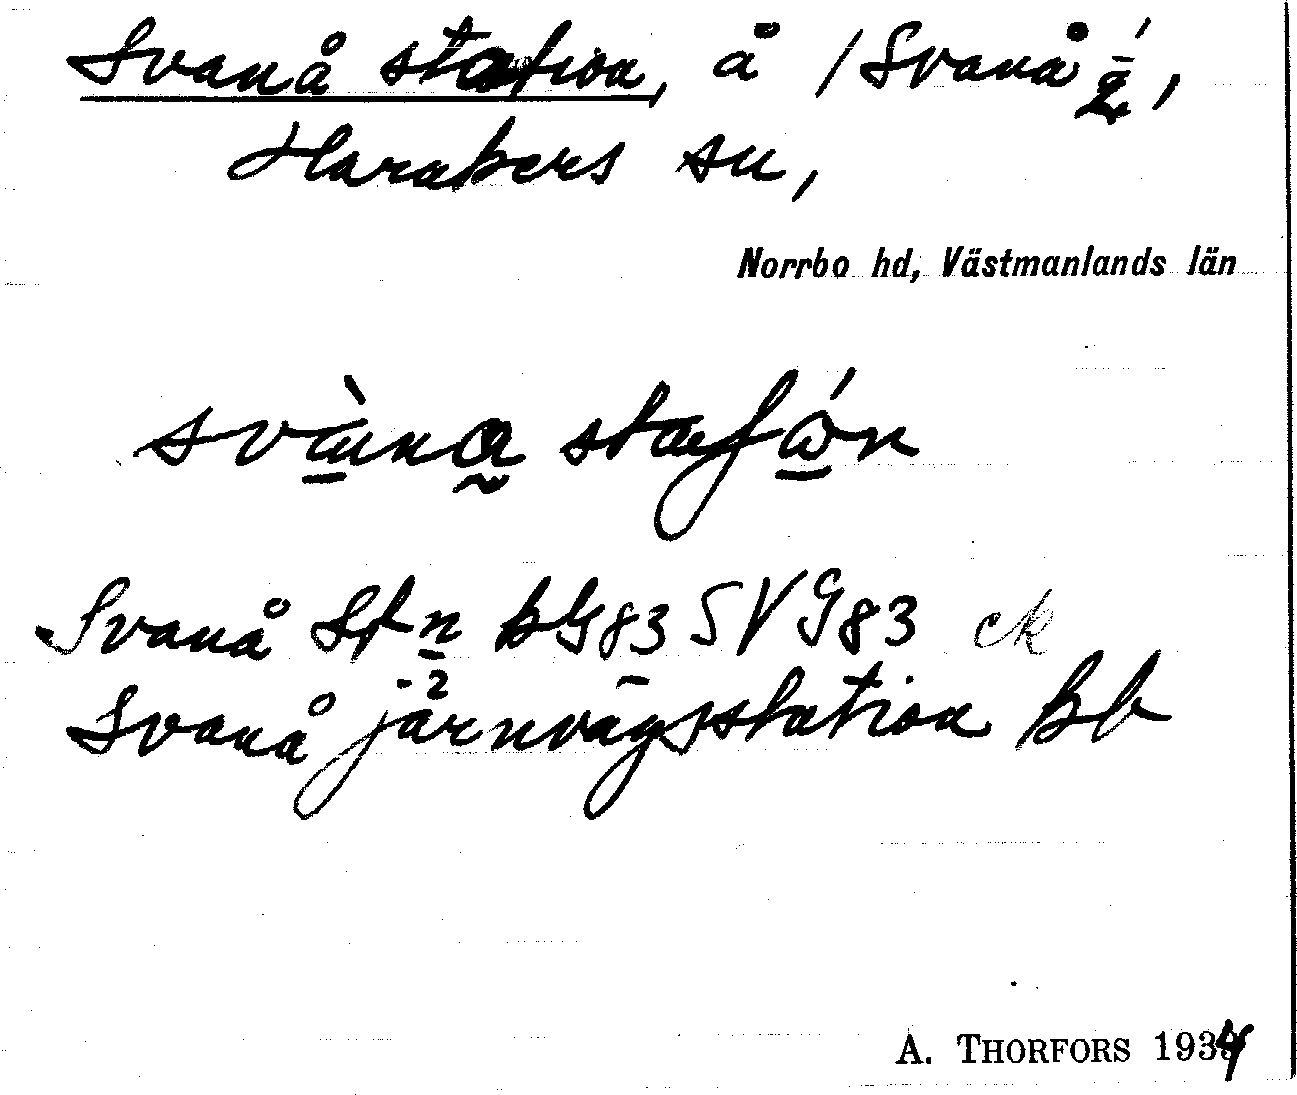 Svanå station, å /Svanå á̱,
Harakers sn,
Norrbo hd, Västmanlands län
svàna staʃón
Svanå Stn bG83 SVG83 ck
Svanå järnvägsstation Bb
A. THORFORS 1934